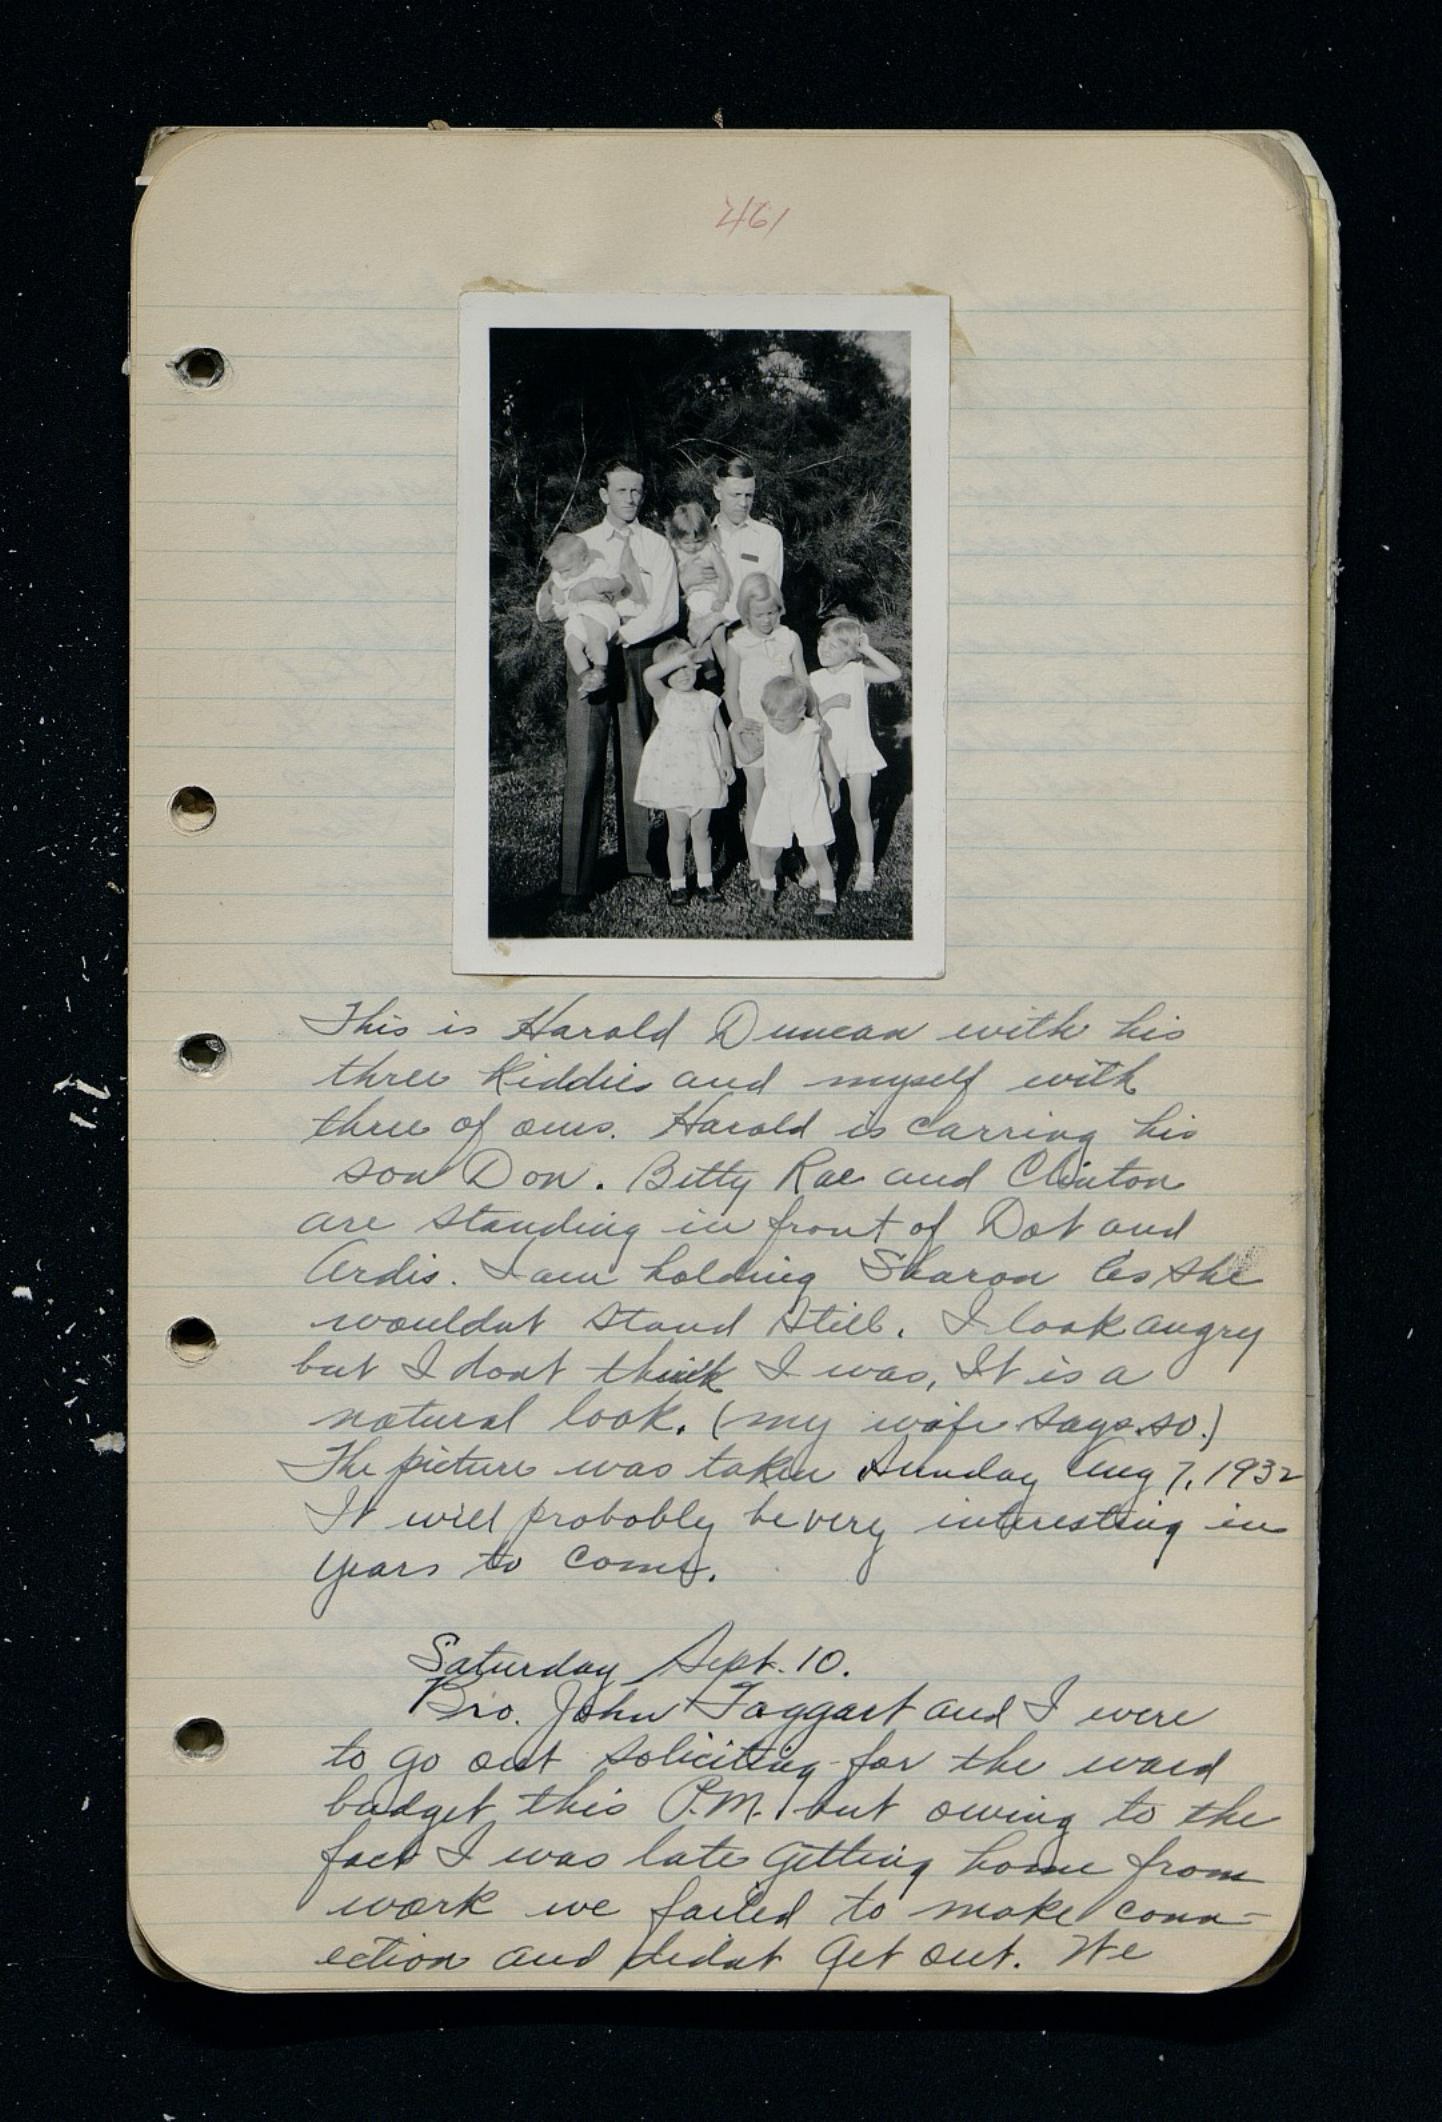 461
This is Harold Duncan with his
three kiddies and myself with
three of ours. Harold is carring his
son Don. Betty Rae and Clinton
are standing in front of Dot and
Ardis. I am holding Sharon as she
wouldnt stand still. I look angry
but I dont think I was, It is a
natural look. (my wife says so.)
The picture was taken Sunday Aug 7, 1932
It will probobly be very interesting in
years to come.
Saturday Sept. 10.
Bro. John Taggart and I were
to go out soliciting for the ward
budget this P.M. but owing to the
fact I was late getting home from
work we failed to make conn-
ection and didnt get out. We